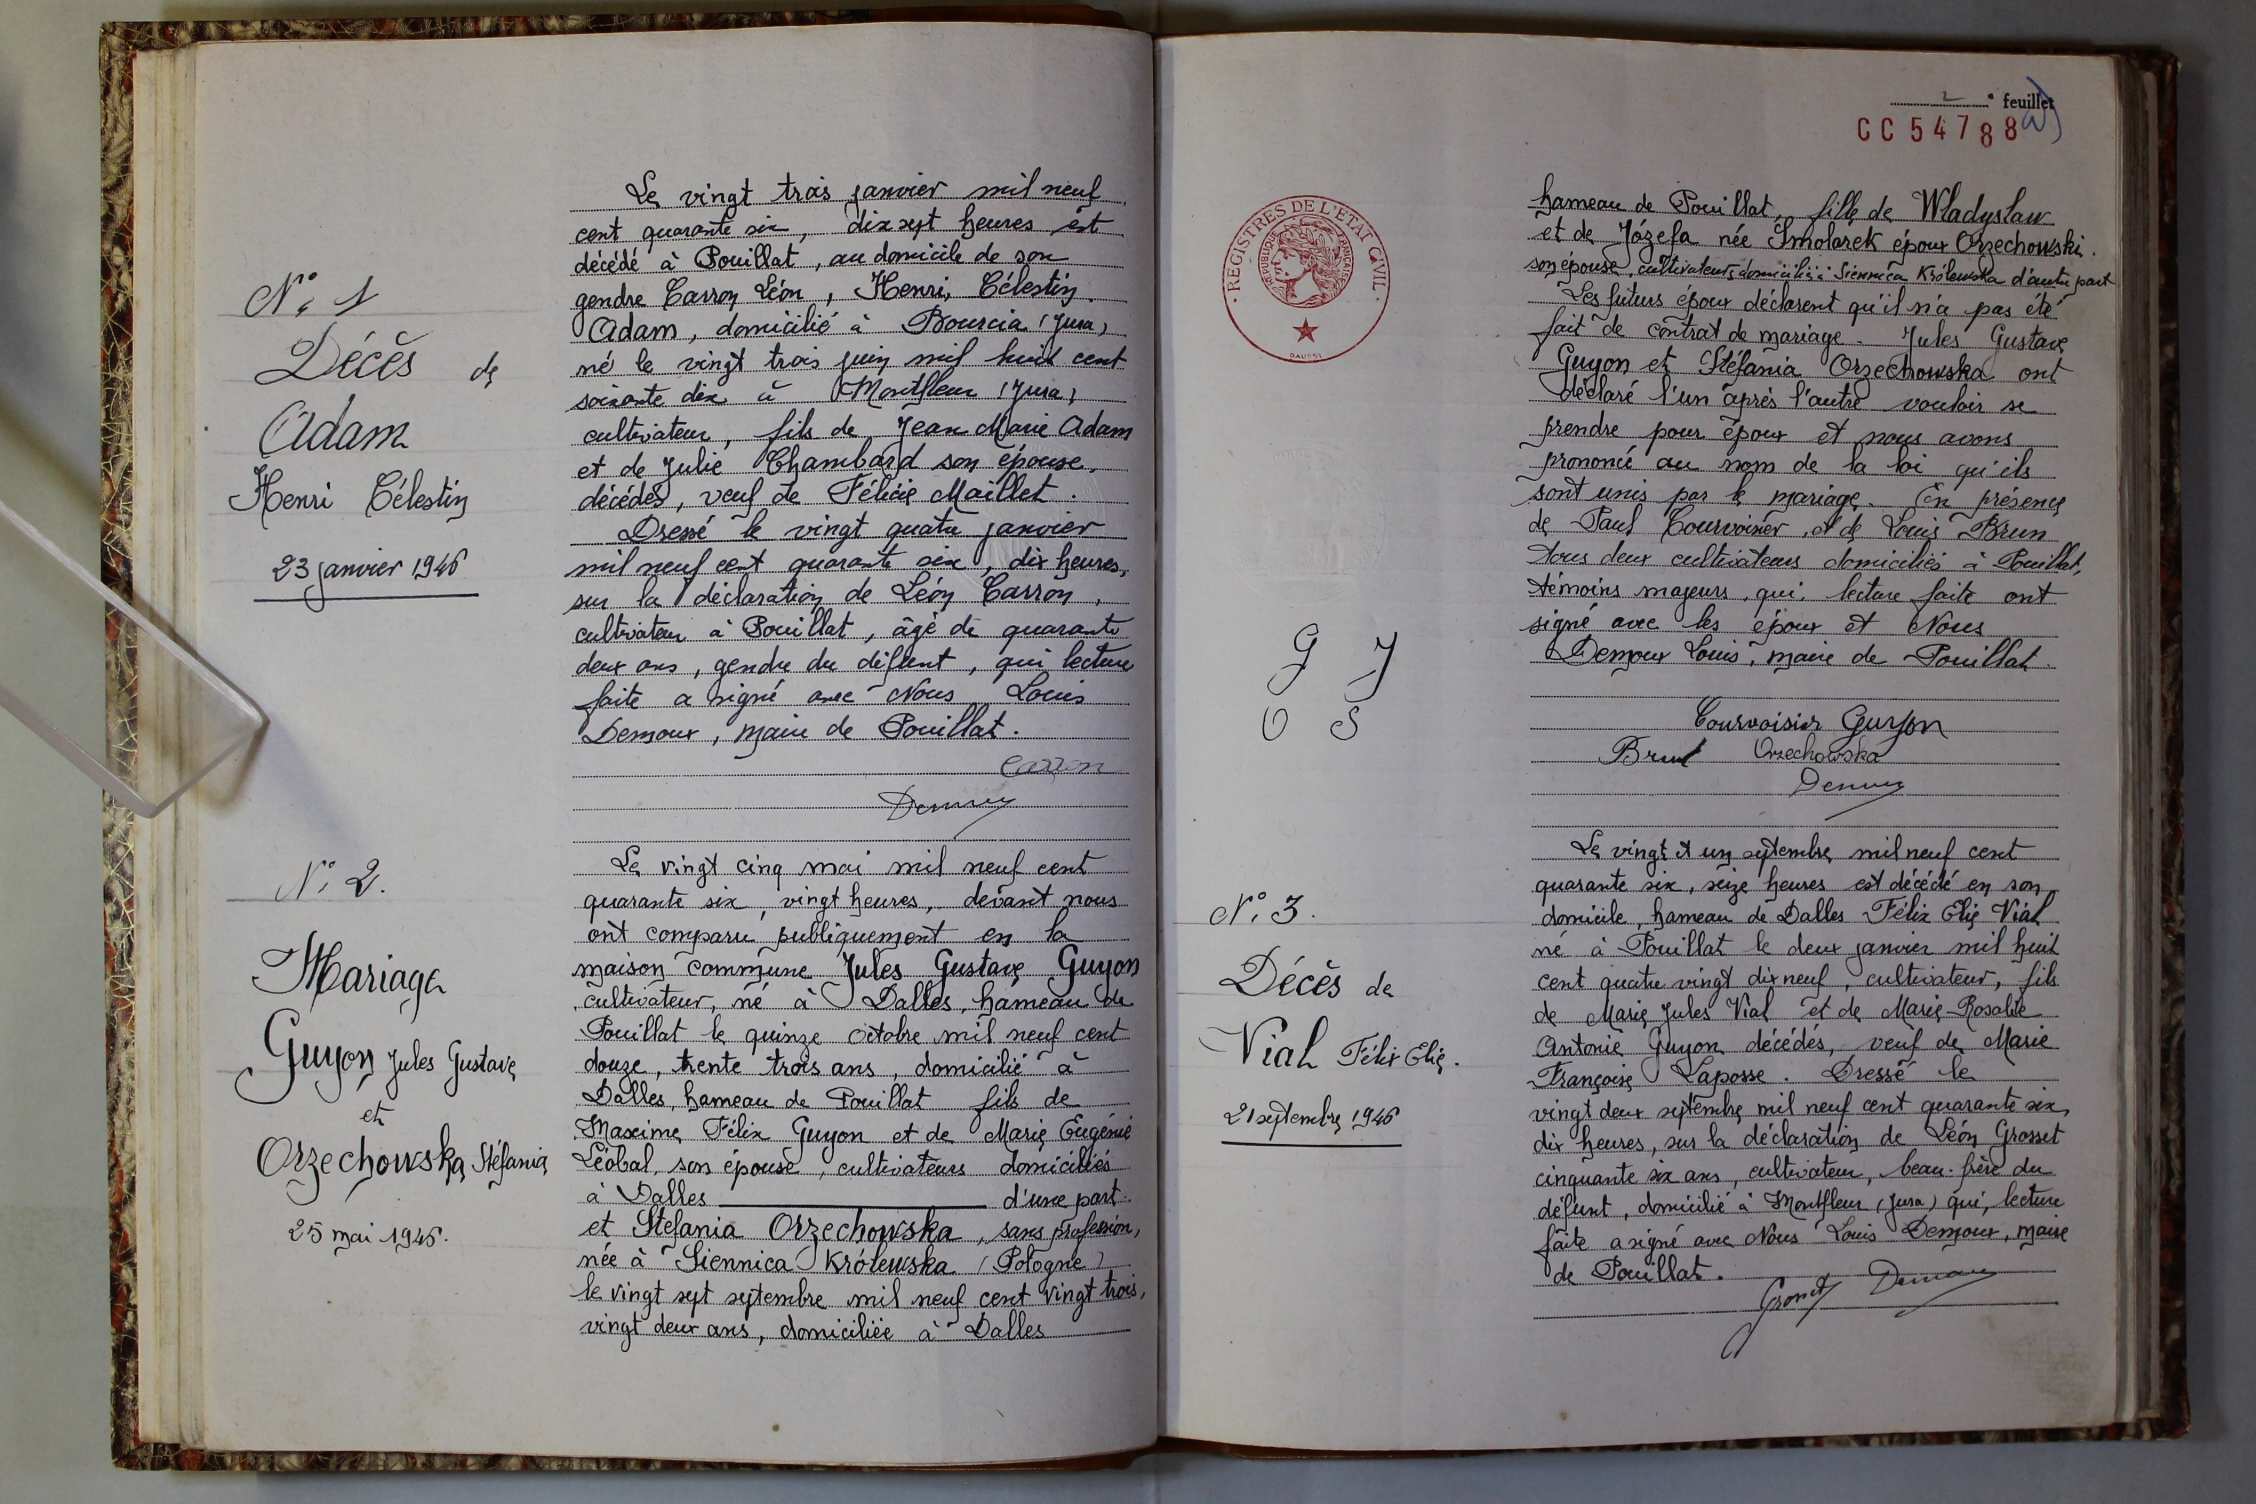 N° 1
Décès de
Adam
Henri Célestin
23 janvier 1946
Le vingt trois janvier mil neuf
cent quarante six, dix sept heures est
décédé à Pouillat, au domicile de son
gendre Carron Léon, Henri, Célestin
Adam, domicilié à Bourcia (Jura)
né le vingt trois juin mil huit cent
soixante dix à Montfleur (Jura)
cultivateur, fils de Jean Marie Adam
et de Julie Chambard son épouse,
décédés, veuf de Félicie Maillet.
Dressé le vingt quatre janvier
mil neuf cent quarante six, dix heures,
sur la déclaration de Léon Carron,
cultivateur à Pouillat, âgé de quarante
deux ans, gendre du défunt, qui, lecture
faite a signé avec Nous Louis
Demoux, maire de Pouillat.
Carron
Demoux
N° 2.
Mariage
Guyon Jules Gustave
et
Orzechowska Stéfania
25 mai 1946.
Le vingt cinq mai mil neuf cent
quarante six, vingt heures, devant nous
ont comparu publiquement en la
maison commune Jules Gustave Guyon
cultivateur, né à Dalles, hameau de
Pouillat le quinze octobre mil neuf cent
douze, trente trois ans, domicilié à
Dalles, hameau de Pouillat fils de
Maxime Félix Guyon et de Marie Eugénie
Léobal, son épouse, cultivateurs domiciliés
à Dalles d'une part.
et Stefania Orzechowska, sans profession,
née à Siennica Królewska (Pologne)
le vingt sept septembre mil neuf cent vingt trois,
vingt deux ans, domiciliée à Dalles
2e feuillet
CC 54788
REGISTRES DE L'ÉTAT CIVIL
RÉPUBLIQUE FRANÇAISE
hameau de Pouillat, fille de Wladyslaw
et de Józefa née Smolarek époux Orzechowski.
son épouse, cultivateurs domiciliés à Siennica Królewska d'autre part
Les futurs époux déclarent qu'il n'a pas été
fait de contrat de mariage. Jules Gustave
Guyon et Stéfania Orzechowska ont
déclaré l'un après l'autre vouloir se
prendre pour époux et nous avons
prononcé au nom de la loi qu'ils
sont unis par le mariage. En présence
de Paul Courvoisier, et de Louis Brun
tous deux cultivateurs domiciliés à Pouillat,
témoins majeurs, qui, lecture faite ont
signé avec les époux et Nous
Demoux Louis, maire de Pouillat.
G J
O S
Courvoisier Guyon
Brun Orzechowska
Demoux
N° 3.
Décès de
Vial Félix Elie.
21 septembre 1946
Le vingt et un septembre mil neuf cent
quarante six, seize heures est décédé en son
domicile, hameau de Dalles Félix Elie Vial
né à Pouillat le deux janvier mil huit
cent quatre vingt dix neuf, cultivateur, fils
de Marie Jules Vial et de Marie-Rosalie
Antonie Guyon décédés, veuf de Marie
Françoise Laposse. Dressé le
vingt deux septembre mil neuf cent quarante six,
dix heures, sur la déclaration de Léon Grosset
cinquante six ans, cultivateur, beau-frère du
défunt, domicilié à Montfleur (Jura) qui, lecture
faite a signé avec Nous Louis Demoux, maire
de Pouillat.
Grosset Demoux